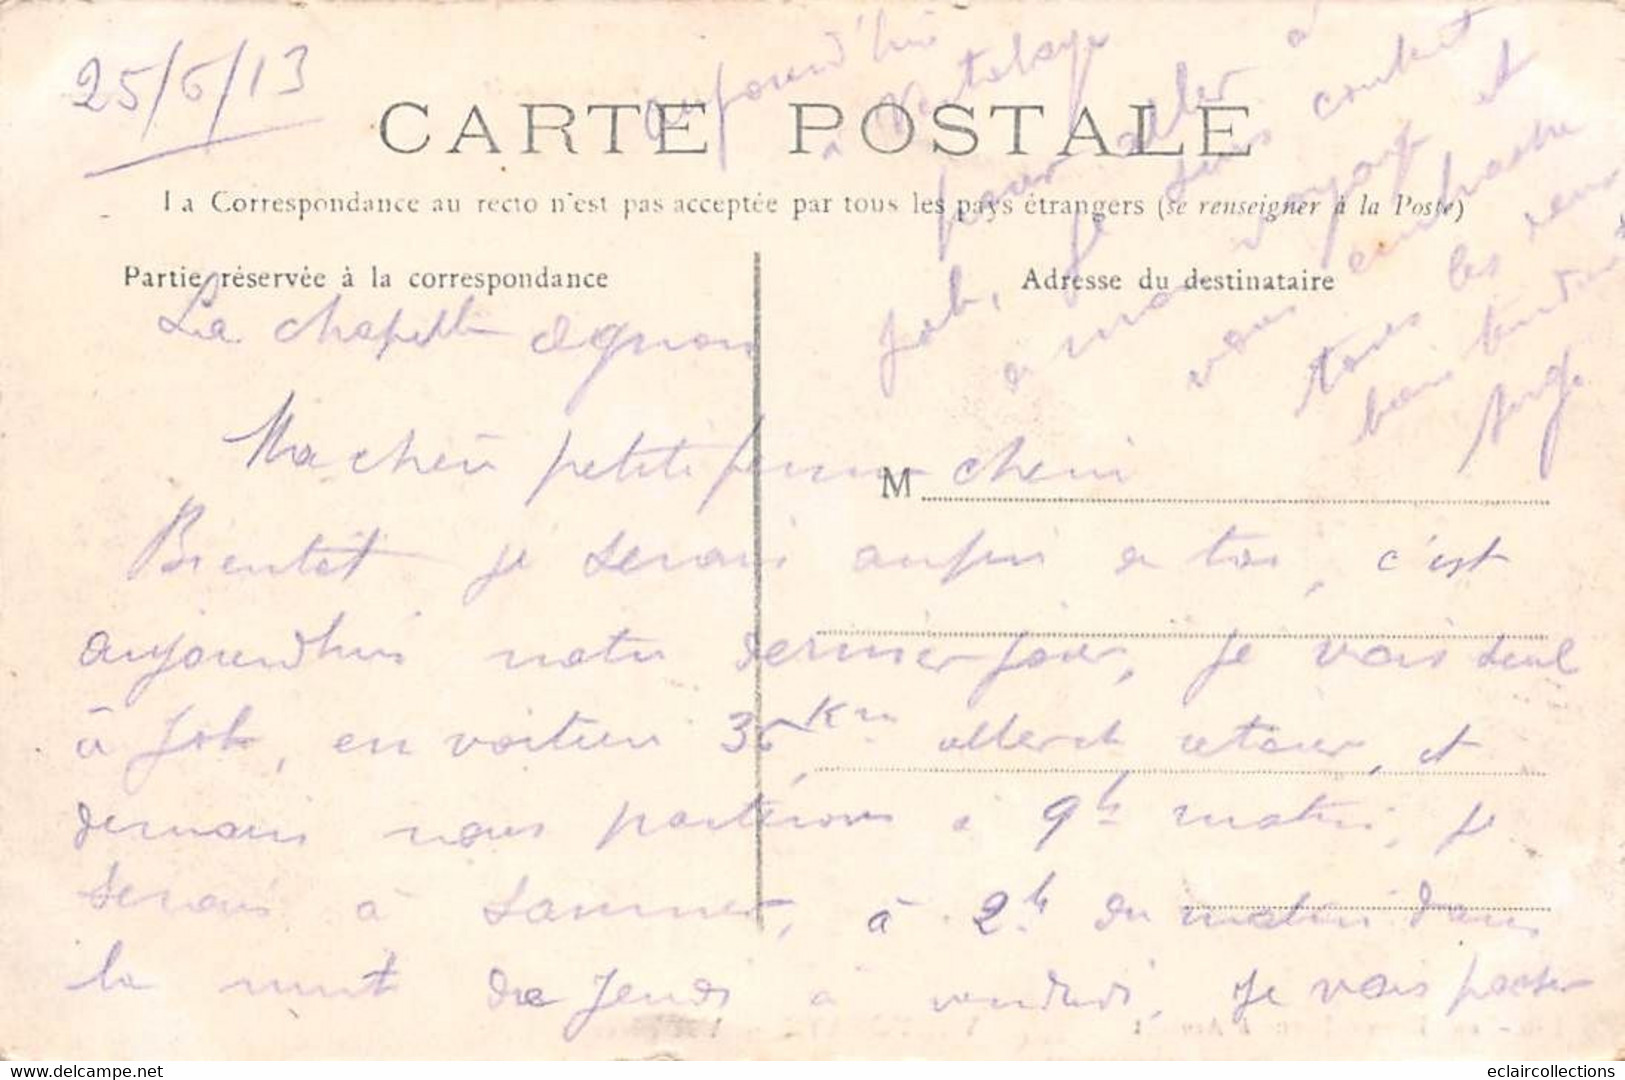 25/6/13
CARTE POSTALE
La Correspondance au recto n'est pas acceptée par tous les pays étrangers (se renseigner à la Poste)
Partie réservée à la correspondance
Adresse du destinataire
La chapelle agnon
Ma chère petite femme chérie
M
Bientôt je serais auprès de toi, c'est
aujourdhui notre dernier jour, je vais seul
à Job, en voiture 36 Km aller et retour, et
demain nous partirons à 9h matin, je
serais à à 2h du matin dans
la nuit de jeudi à vendredi, je vais passer
aujourd'hui
à
pour aller à
Job, je suis content
à mon voyage et
vous embrasse
tous les deux
bien tendre
Serge
eclaircollections